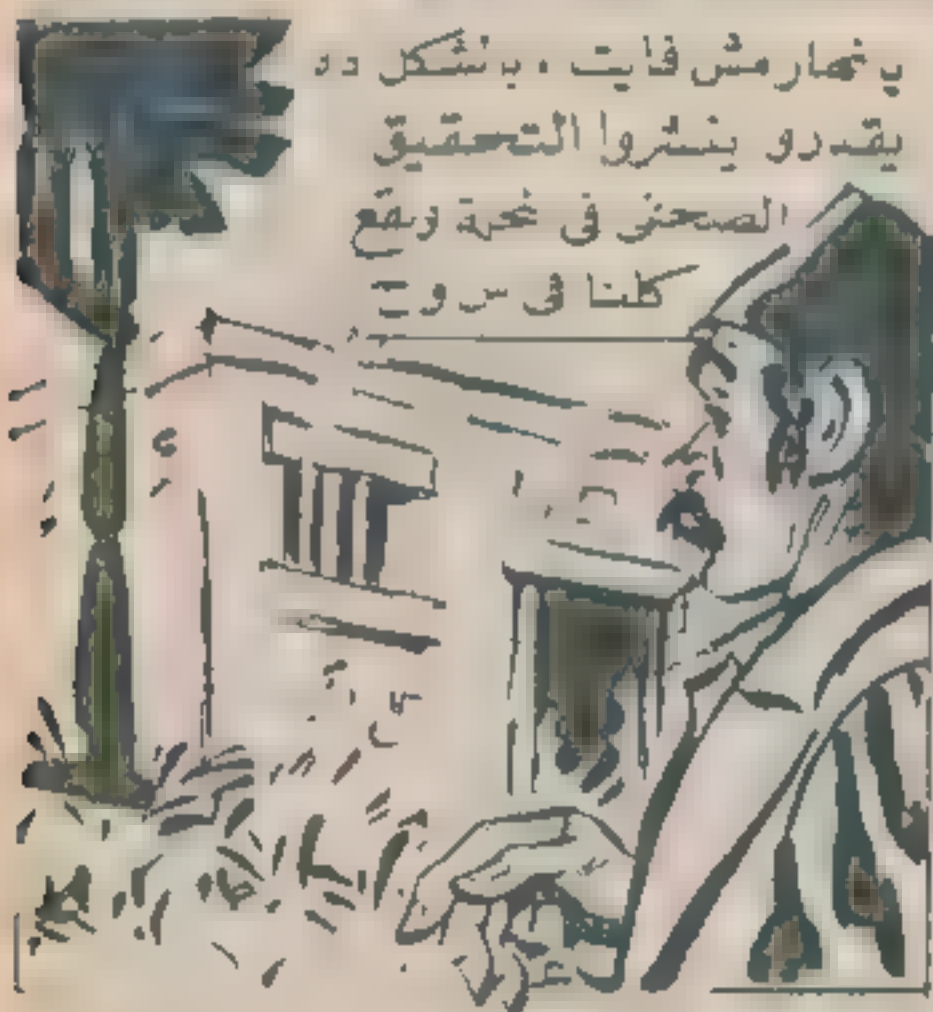 يا نهار مش فايت ، بالشكل ده
يقدرو ينشروا التحقيق
الصحفى فى نمرة ونقع
كلنا فى س و ج